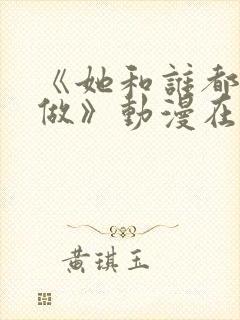 《她和誰都
做》動漫在
黄琪玉